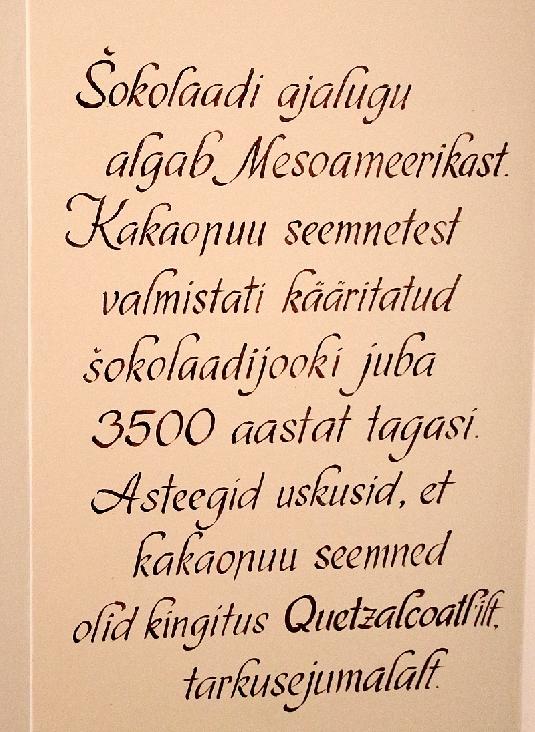 Šokolaadi ajalugu
algab Mesoameerikast.
Kakaopuu seemnetest
valmistati kääritatud
šokolaadijooki juba
3500 aastat tagasi.
Asteegid uskusid, et
kakaopuu seemned
olid kingitus Quetzalcoatl'ilt,
tarkusejumalalt.